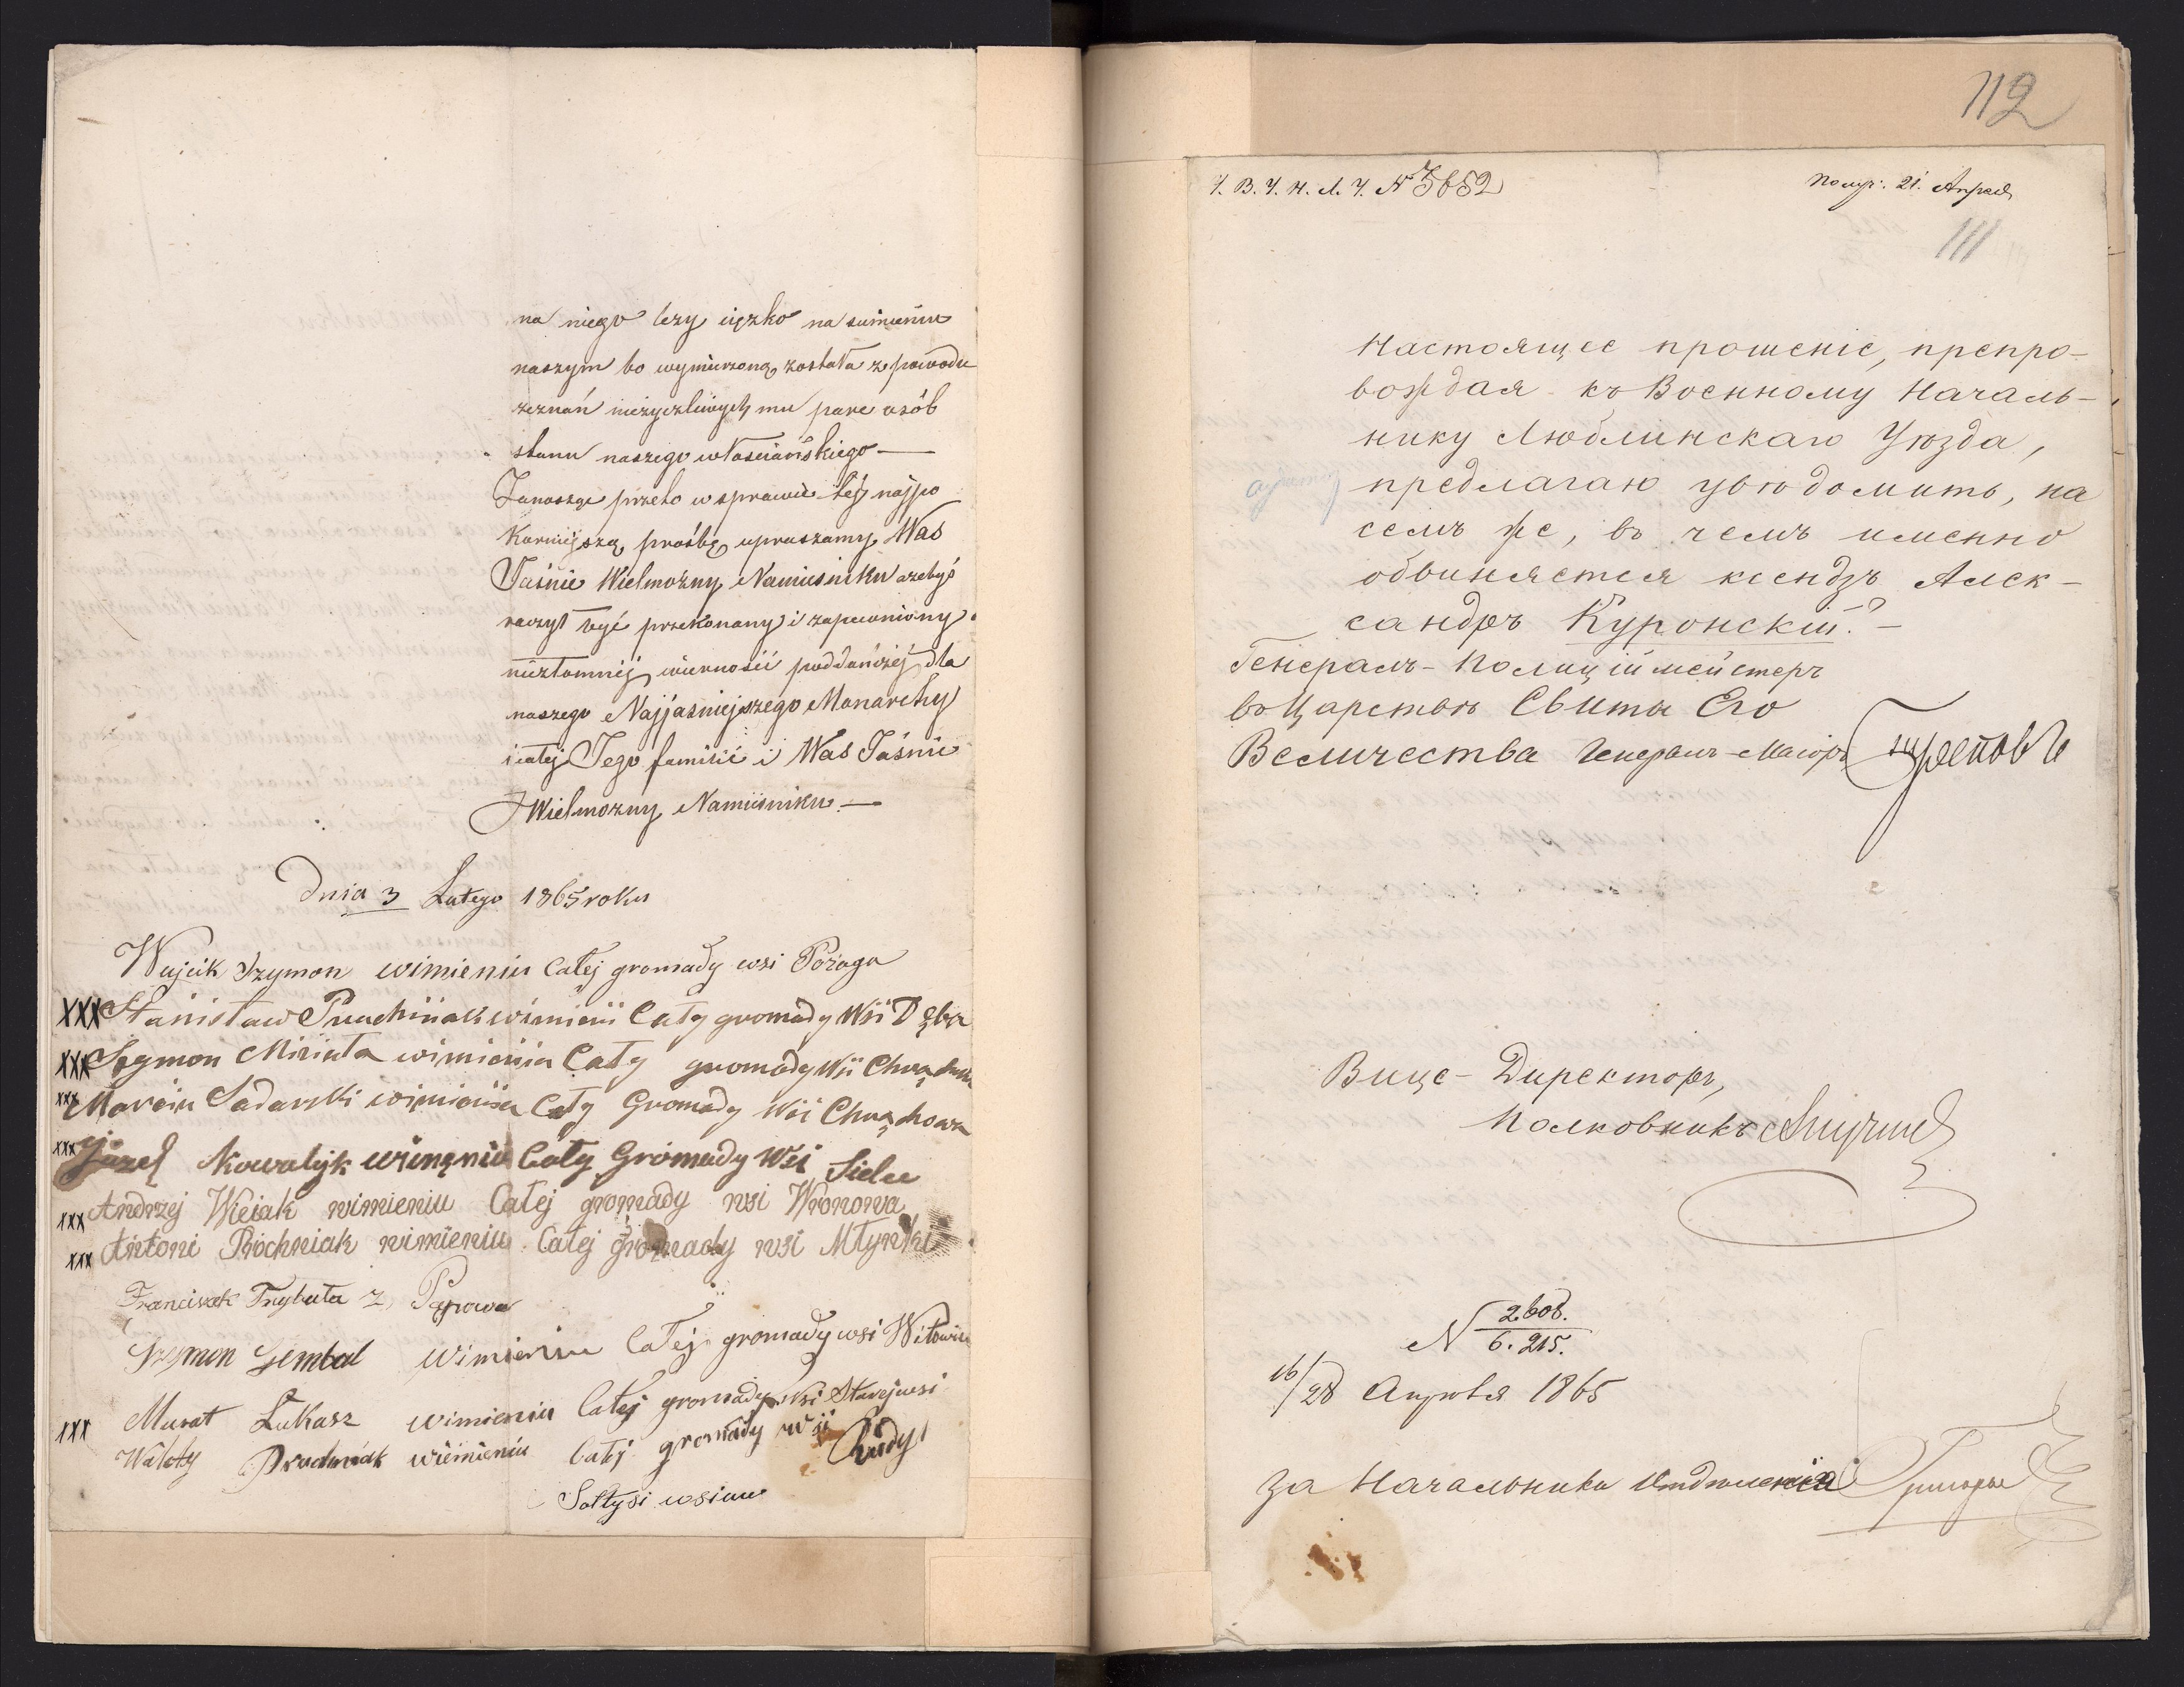 na niego leży ciężko na sumieniu
naszym bo wymierzoną została z powodu
zeznań nieżyczliwych mu pare osób
stanu naszego włościańskiego —
Zanosząc przeto w sprawie tej najpo
korniejszą prośbę upraszamy Was
Jaśnie Wielmożny Namiestniku ażebyś
raczył być przekonany i zapewniony
niezłomnéj wierności poddańczéj dla
naszego Najjaśniejszego Monarchy
i całej Jego familii i Was Jaśnie
Wielmożny Namiestniku. —
Dnia 3 Lutego 1865 roku
Wujcik Szymon wimieniu Całej gromady wsi Pożaga
XXX Stanisław wimieniu Cały gromady Wsi Dęba
XXX Szymon wimieniu Cały gromady Wsi
XXX Marcin Sadurski wimieniu Cały Gromady Wsi Chrąchowa
XXX Józef Kowalyk wimęniu Cały Gromady Wsi Sielce
XXX Andrzej Wiciak wimieniu Całej gromady wsi Wronowa
XXX Antoni Prochniak wimieniu Całej gromady wsi Młynki
Franciszek Trybuła z Pępowa
Szymon Gembal wimieniu Całej gromady wsi
XXX Murat Łukasz wimieniu Całej gromady wsi Starejwsi
wimieniu Całj gromady wsii Rudy
Sołtysi wsiów
112
У. В. У. Н. Л. У. № 3652
Получ: 21. Апреля
111
Настоящее прошеніе, препро-
вождая къ Военному Началь-
нику Люблинскаго Уѣзда,
предлагаю увѣдомить, на
семъ же, въ чемъ именно
обвиняется ксендзъ Алек-
сандръ Куронскій? —
Генералъ-Полиціймейстеръ
въ Царствѣ Свиты Его
Величества Генералъ-Маіоръ Треповъ
Вице-Директоръ,
Полковникъ
№ 2608.
6.215.
16/28 Апрѣля 1865
За Начальника Отдѣленія